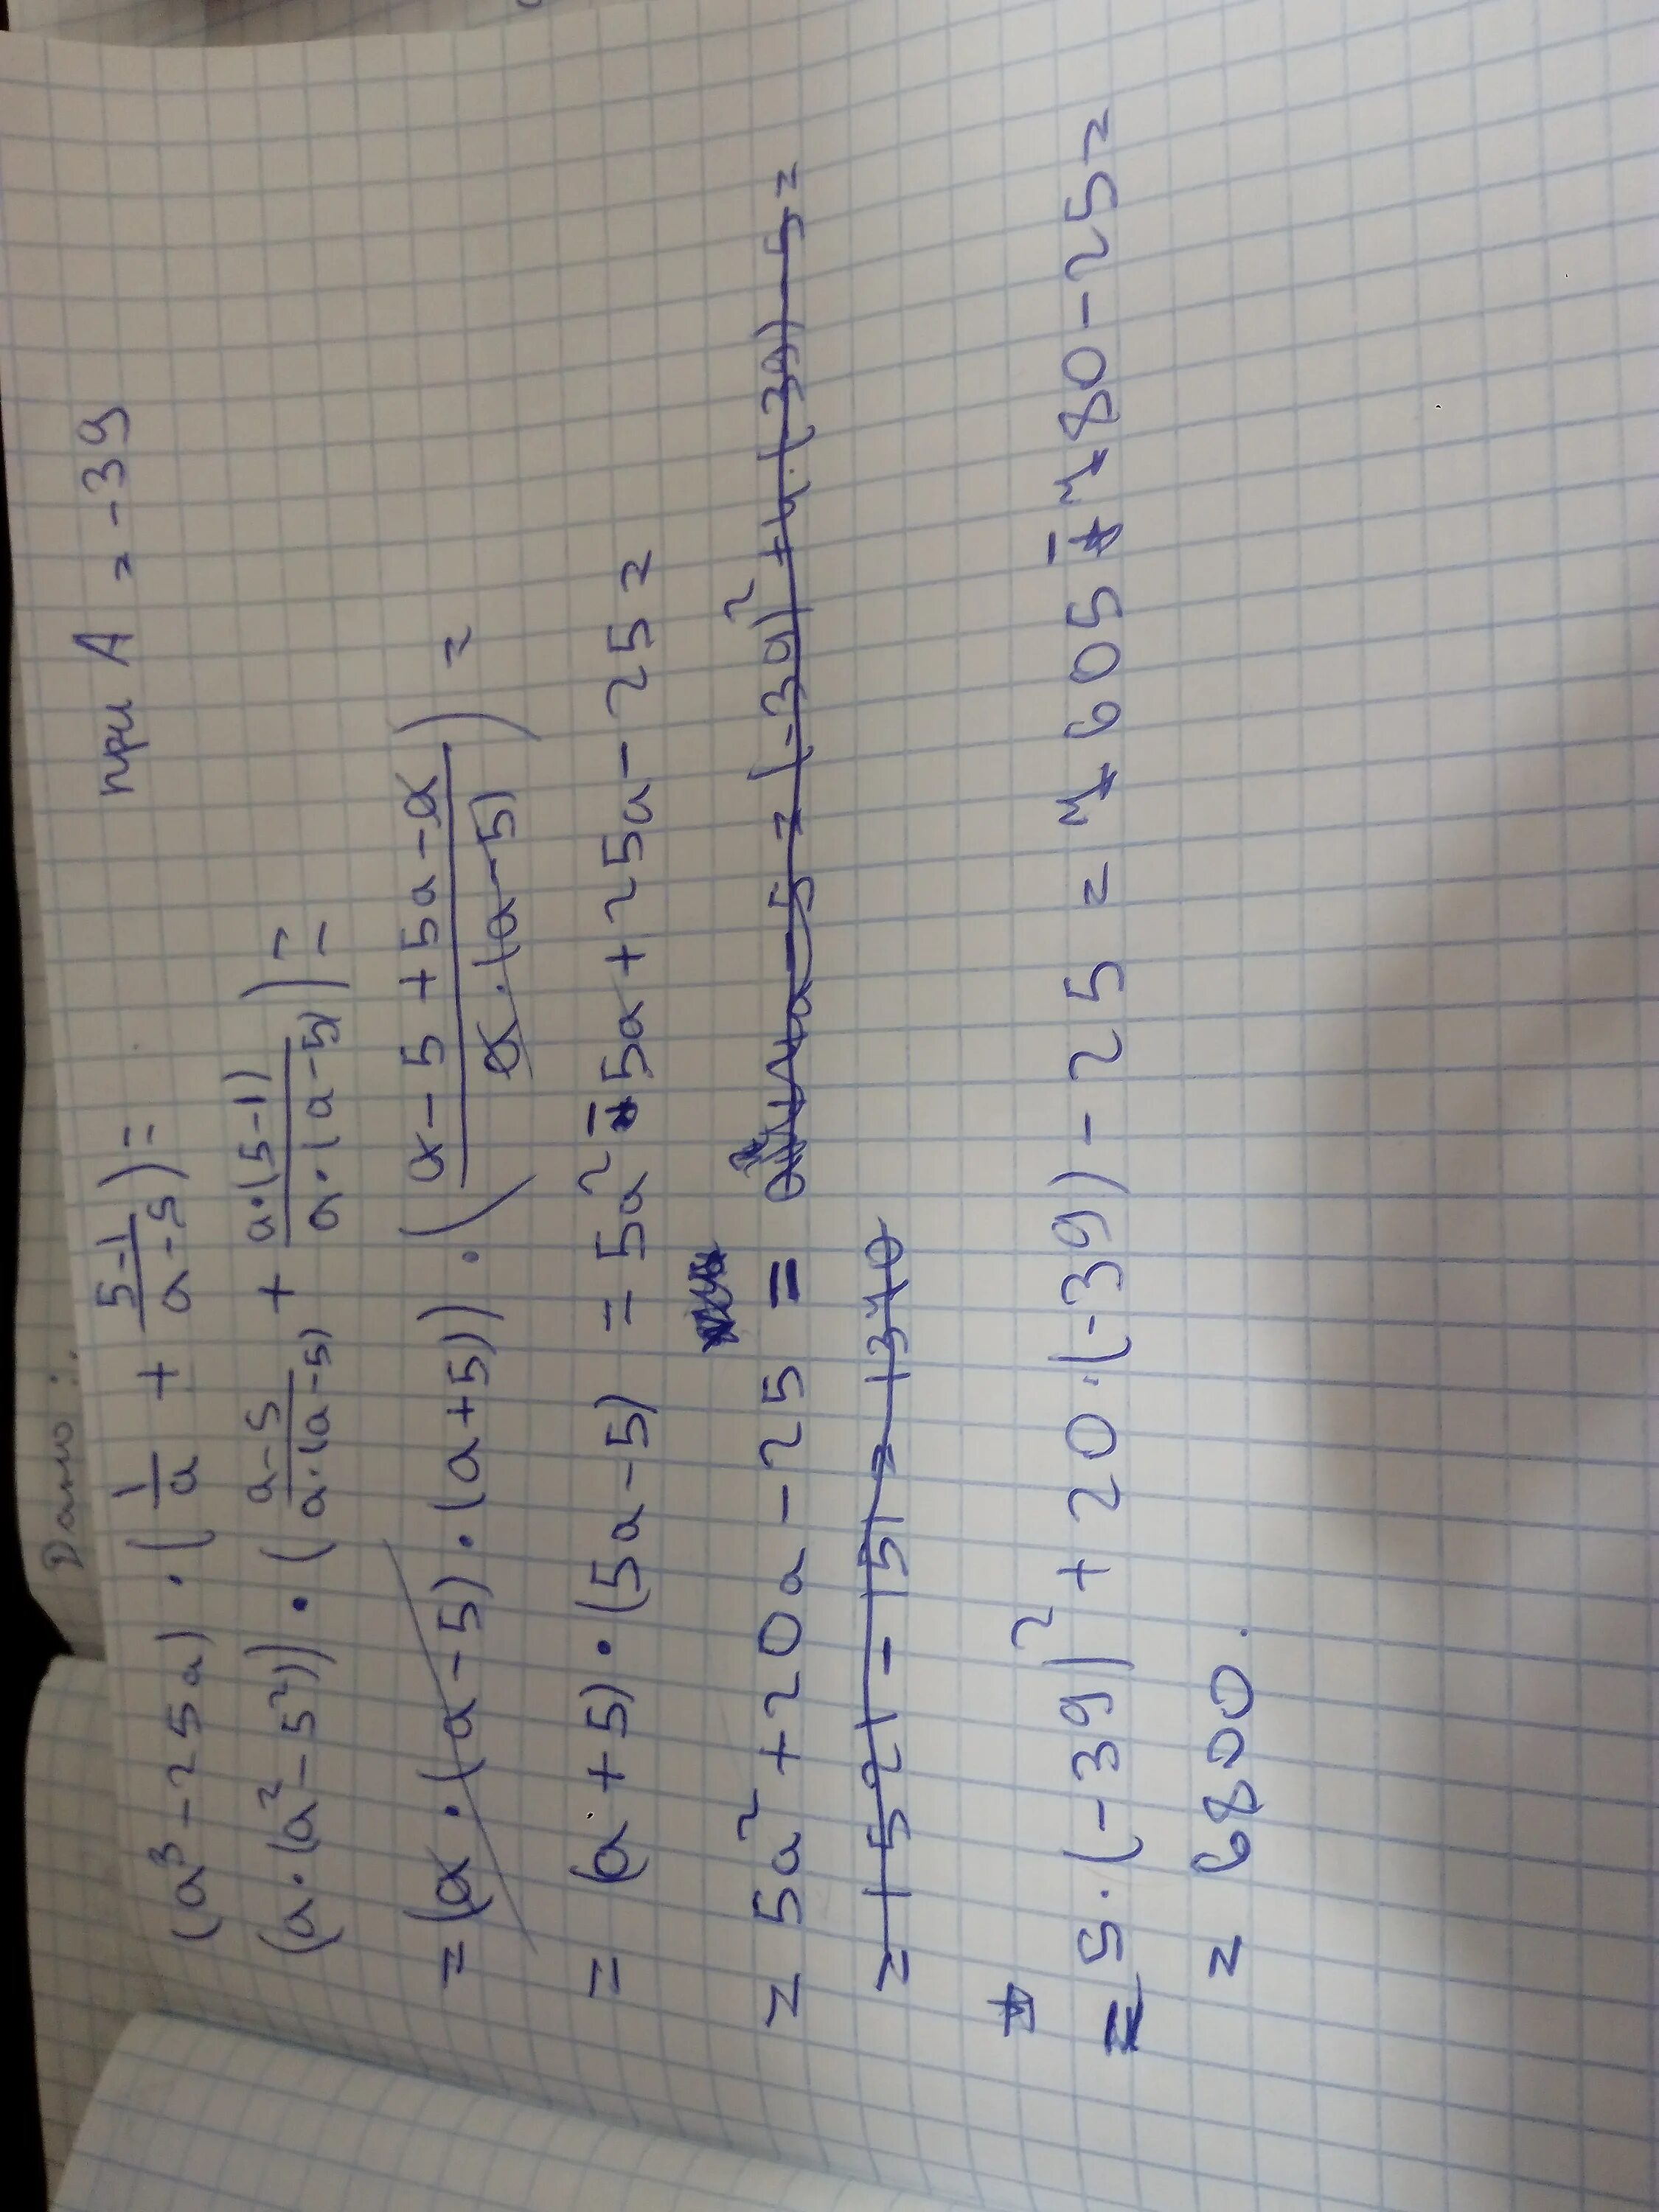 Дано:
при A = -39
(a³ - 25a) · (1/a + (5-1)/(a-5)) =
(a·(a² - 5²)) · ((a-5)/(a·(a-5)) + (a·(5-1))/(a·(a-5))) =
= (a·(a-5)·(a+5)) · ((a-5+5a-a)/(a·(a-5))) =
= (a+5)·(5a-5) = 5a² - 5a + 25a - 25 =
= 5a² + 20a - 25 =
= 5·(-39)² + 20·(-39) - 25 = 7605 - 780 - 25 =
= 6800.